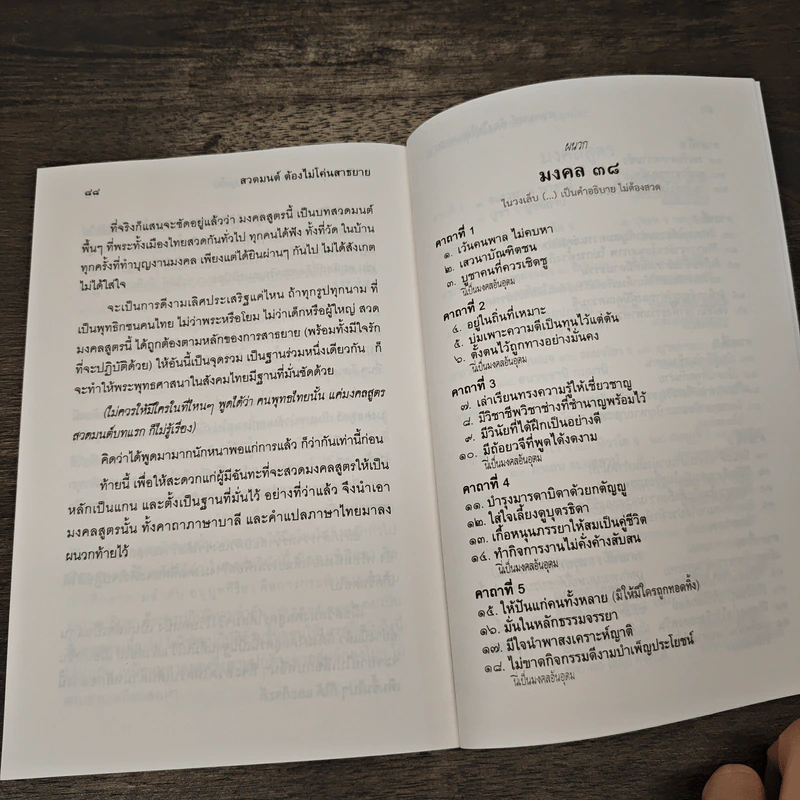 ๘๘
สวดมนต์ ต้องไม่โค่นสาธยาย
ที่จริงก็แสนจะชัดอยู่แล้วว่า มงคลสูตรนี้ เป็นบทสวดมนต์
พื้นๆ ที่พระทั้งเมืองไทยสวดกันทั่วไป ทุกคนได้ฟัง ทั้งที่วัด ในบ้าน
ทุกครั้งที่ทำบุญงานมงคล เพียงแต่ได้ยินผ่านๆ กันไป ไม่ได้สังเกต
ไม่ได้ใส่ใจ
จะเป็นการดีงามเลิศประเสริฐแค่ไหน ถ้าทุกรูปทุกนาม ที่
เป็นพุทธิกชนคนไทย ไม่ว่าพระหรือโยม ไม่ว่าเด็กหรือผู้ใหญ่ สวด
มงคลสูตรนี้ ได้ถูกต้องตามหลักของการสาธยาย (พร้อมทั้งมีใจรัก
ที่จะปฏิบัติด้วย) ให้อันนี้เป็นจุดรวม เป็นฐานร่วมหนึ่งเดียวกัน ก็
จะทำให้พระพุทธศาสนาในสังคมไทยมีฐานที่มั่นชัดด้วย
(ไม่ควรให้มีใครในที่ไหนๆ พูดได้ว่า คนพุทธไทยนั้น แค่มงคลสูตร
สวดมนต์บทแรก ก็ไม่รู้เรื่อง)
คิดว่าได้พูดมามากนักหนาพอแก่การแล้ว ก็ว่ากันเท่านี้ก่อน
ท้ายนี้ เพื่อให้สะดวกแก่ผู้มีฉันทะที่จะสวดมงคลสูตรให้เป็น
หลักเป็นแกน และตั้งเป็นฐานที่มั่นไว้ อย่างที่ว่าแล้ว จึงนำเอา
มงคลสูตรนั้น ทั้งคาถาภาษาบาลี และคำแปลภาษาไทยมาลง
ผนวกท้ายไว้
ผนวก
มงคล ๓๘
ในวงเล็บ (...) เป็นคำอธิบาย ไม่ต้องสวด
คาถาที่ 1
๑. เว้นคนพาล ไม่คบหา
๒. เสวนาบัณฑิตชน
๓. บูชาคนที่ควรเชิดชู
นี่เป็นมงคลอันอุดม
คาถาที่ 2
๔. อยู่ในถิ่นที่เหมาะ
๕. บ่มเพาะความดีเป็นทุนไว้แต่ต้น
๖. ตั้งตนไว้ถูกทางอย่างมั่นคง
นี่เป็นมงคลอันอุดม
คาถาที่ 3
๗. เล่าเรียนทรงความรู้ให้เชี่ยวชาญ
๘. มีวิชาชีพวิชาช่างที่ชำนาญพร้อมไว้
๙. มีวินัยที่ได้ฝึกเป็นอย่างดี
๑๐. มีถ้อยวจีที่พูดได้งดงาม
นี่เป็นมงคลอันอุดม
คาถาที่ 4
๑๑. บำรุงมารดาบิดาด้วยกตัญญู
๑๒. ใส่ใจเลี้ยงดูบุตรธิดา
๑๓. เกื้อหนุนภรรยาให้สมเป็นคู่ชีวิต
๑๔. ทำกิจการงานไม่คั่งค้างสับสน
นี่เป็นมงคลอันอุดม
คาถาที่ 5
๑๕. ให้ปันแก่คนทั้งหลาย (มิให้มีใครถูกทอดทิ้ง)
๑๖. มั่นในหลักธรรมจรรยา
๑๗. มีใจนำพาสงเคราะห์ญาติ
๑๘. ไม่ขาดกิจกรรมดีงามบำเพ็ญประโยชน์
นี่เป็นมงคลอันอุดม